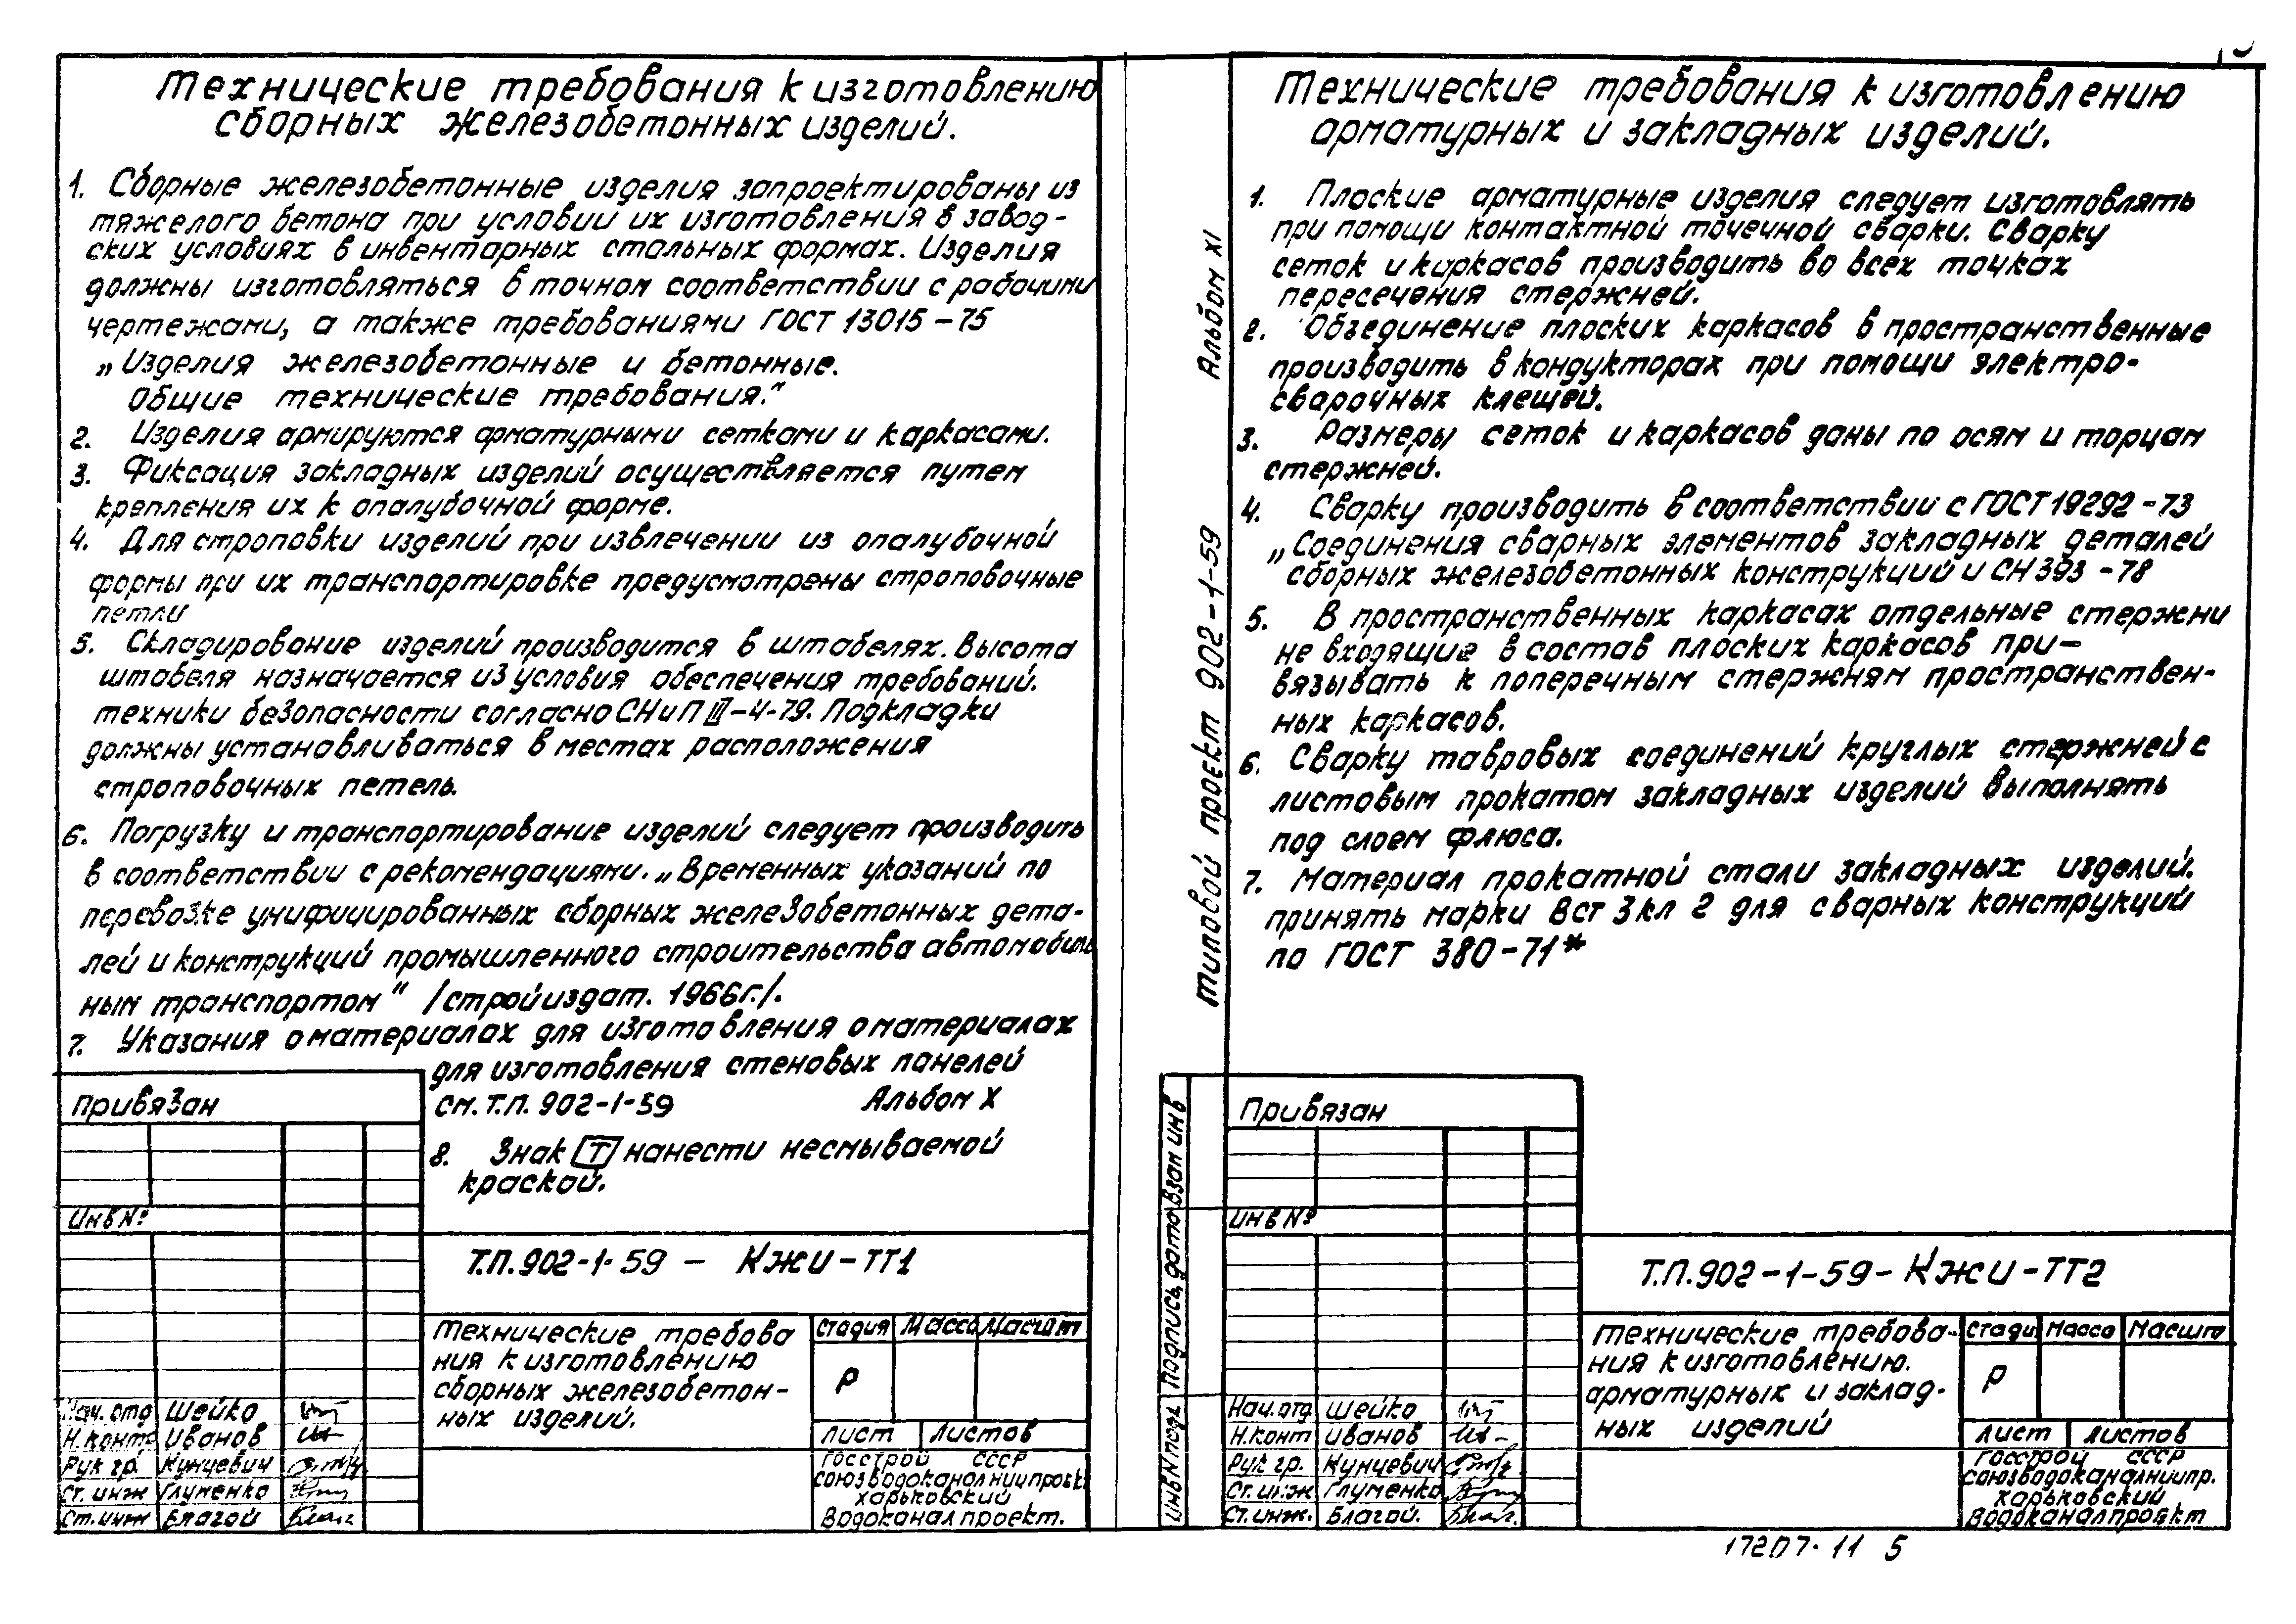 Технические требования к изготовлению
сборных железобетонных изделий.
1. Сборные железобетонные изделия запроектированы из
тяжелого бетона при условии их изготовления в завод-
ских условиях в инвентарных стальных формах. Изделия
должны изготовляться в точном соответствии с рабочими
чертежами, а также требованиями ГОСТ 13015-75
„Изделия железобетонные и бетонные.
Общие технические требования."
2. Изделия армируются арматурными сетками и каркасами.
3. Фиксация закладных изделий осуществляется путем
крепления их к опалубочной форме.
4. Для строповки изделий при извлечении из опалубочной
формы при их транспортировке предусмотрены строповочные
петли
5. Складирование изделий производится в штабелях. Высота
штабеля назначается из условия обеспечения требований.
техники безопасности согласно СНиП III-4-79. Подкладки
должны устанавливаться в местах расположения
строповочных петель.
6. Погрузку и транспортирование изделий следует производить
в соответствии с рекомендациями. „Временных указаний по
перевозке унифицированных сборных железобетонных дета-
лей и конструкций промышленного строительства автомобиль
ным транспортом" /стройиздат. 1966г./.
7. Указания о материалах для изготовления о материалах
для изготовления стеновых панелей
см. Т.П. 902-1-59 Альбом X
8. Знак T нанести несмываемой
краской.
Привязан
Инв №
Т.П.902-1-59 - КЖИ-ТТ1
Технические требова
ния к изготовлению
сборных железобетон-
ных изделий.
Стадия Масса Масшт
Р
Лист Листов
Госстрой СССР
Союзводоканалниипроект
Харьковский
Водоканалпроект.
Нач. отд Шейко
Н. контр Иванов
Рук гр. Кунцевич
Ст. инж Глуменко
Ст. инж Благой
Альбом XI
Типовой проект 902-1-59
Технические требования к изготовлению
арматурных и закладных изделий.
1. Плоские арматурные изделия следует изготовлять
при помощи контактной точечной сварки. Сварку
сеток и каркасов производить во всех точках
пересечения стержней.
2. Объединение плоских каркасов в пространственные
производить в кондукторах при помощи электро-
сварочных клещей.
3. Размеры сеток и каркасов даны по осям и торцам
стержней.
4. Сварку производить в соответствии с ГОСТ 19292-73
„Соединения сварных элементов закладных деталей
сборных железобетонных конструкций и СН 393-78
5. В пространственных каркасах отдельные стержни
не входящие в состав плоских каркасов при-
вязывать к поперечным стержням пространствен-
ных каркасов.
6. Сварку тавровых соединений круглых стержней с
листовым прокатом закладных изделий выполнять
под слоем флюса.
7. Материал прокатной стали закладных изделий.
принять марки Вст 3кл 2 для сварных конструкций
по ГОСТ 380-71*
Привязан
Инв №
Инв N подл Подпись, дата Взам инв
Т.П.902-1-59-КЖИ-ТТ2
Технические требова-
ния к изготовлению.
арматурных и заклад-
ных изделий
Стади Масса Масшта
Р
Лист Листов
Госстрой СССР
Союзводоканалниипр.
Харьковский
Водоканалпроект
Нач. отд Шейко
Н. конт Иванов
Рук гр. Кунцевич
Ст. инж Глуменко
Ст. инж. Благой.
17207-11 5